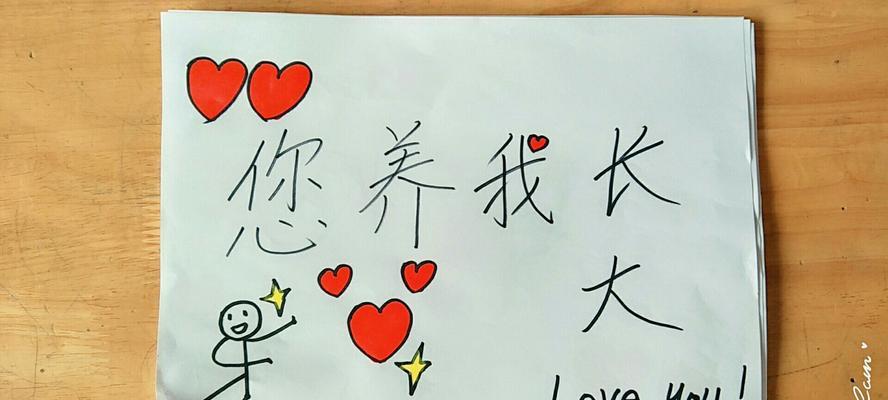 您养我长
大
Love you!